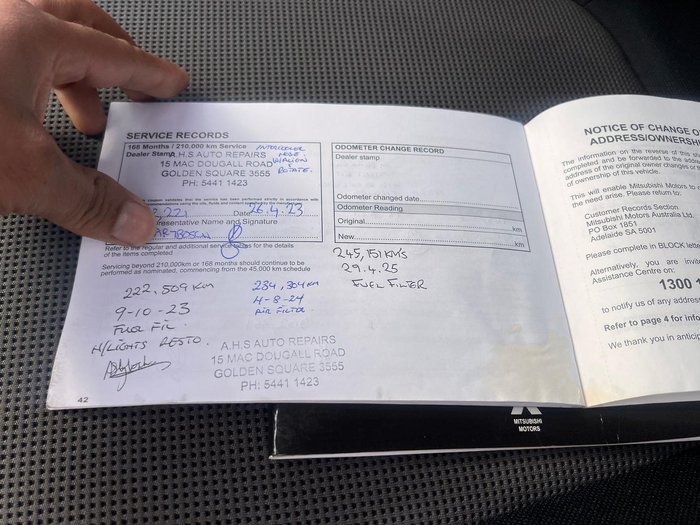 SERVICE RECORDS
168 Months / 210,000 km Service
Dealer Stamp A.H.S AUTO REPAIRS
15 MAC DOUGALL ROAD
GOLDEN SQUARE 3555
PH: 5441 1423
INTERCOOLER
HOSE.
W/ALIGN &
ROTATE.
Date 26.4.23
Representative Name and Signature
Refer to the regular and additional service tables for the details
of the items completed
Servicing beyond 210,000km or 168 months should continue to
be performed as nominated, commencing from the 45,000 km schedule
222,509 KM
9-10-23
FUEL FIL
H/LIGHTS RESTO.
234,304 KM
4-8-24
AIR FILTER
A.H.S AUTO REPAIRS
15 MAC DOUGALL ROAD
GOLDEN SQUARE 3555
PH: 5441 1423
42
ODOMETER CHANGE RECORD
Dealer stamp
Odometer changed date
Odometer Reading
Original km
New km
245,751 KMS
29.4.25
FUEL FILTER
NOTICE OF CHANGE O
ADDRESS/OWNERSH
The information on the reverse of this
completed and forwarded to the
address of the original owner changes or
of ownership of this vehicle.
This will enable Mitsubishi Motors
the need arise. Please return to:
Customer Records Section
Mitsubishi Motors Australia Ltd.
PO Box 1851
Adelaide SA 5001
Please complete in BLOCK
Alternatively, you are
Assistance Centre on:
1300 1
to notify us of any addres
Refer to page 4 for info
We thank you in anticip
MITSUBISHI
MOTORS